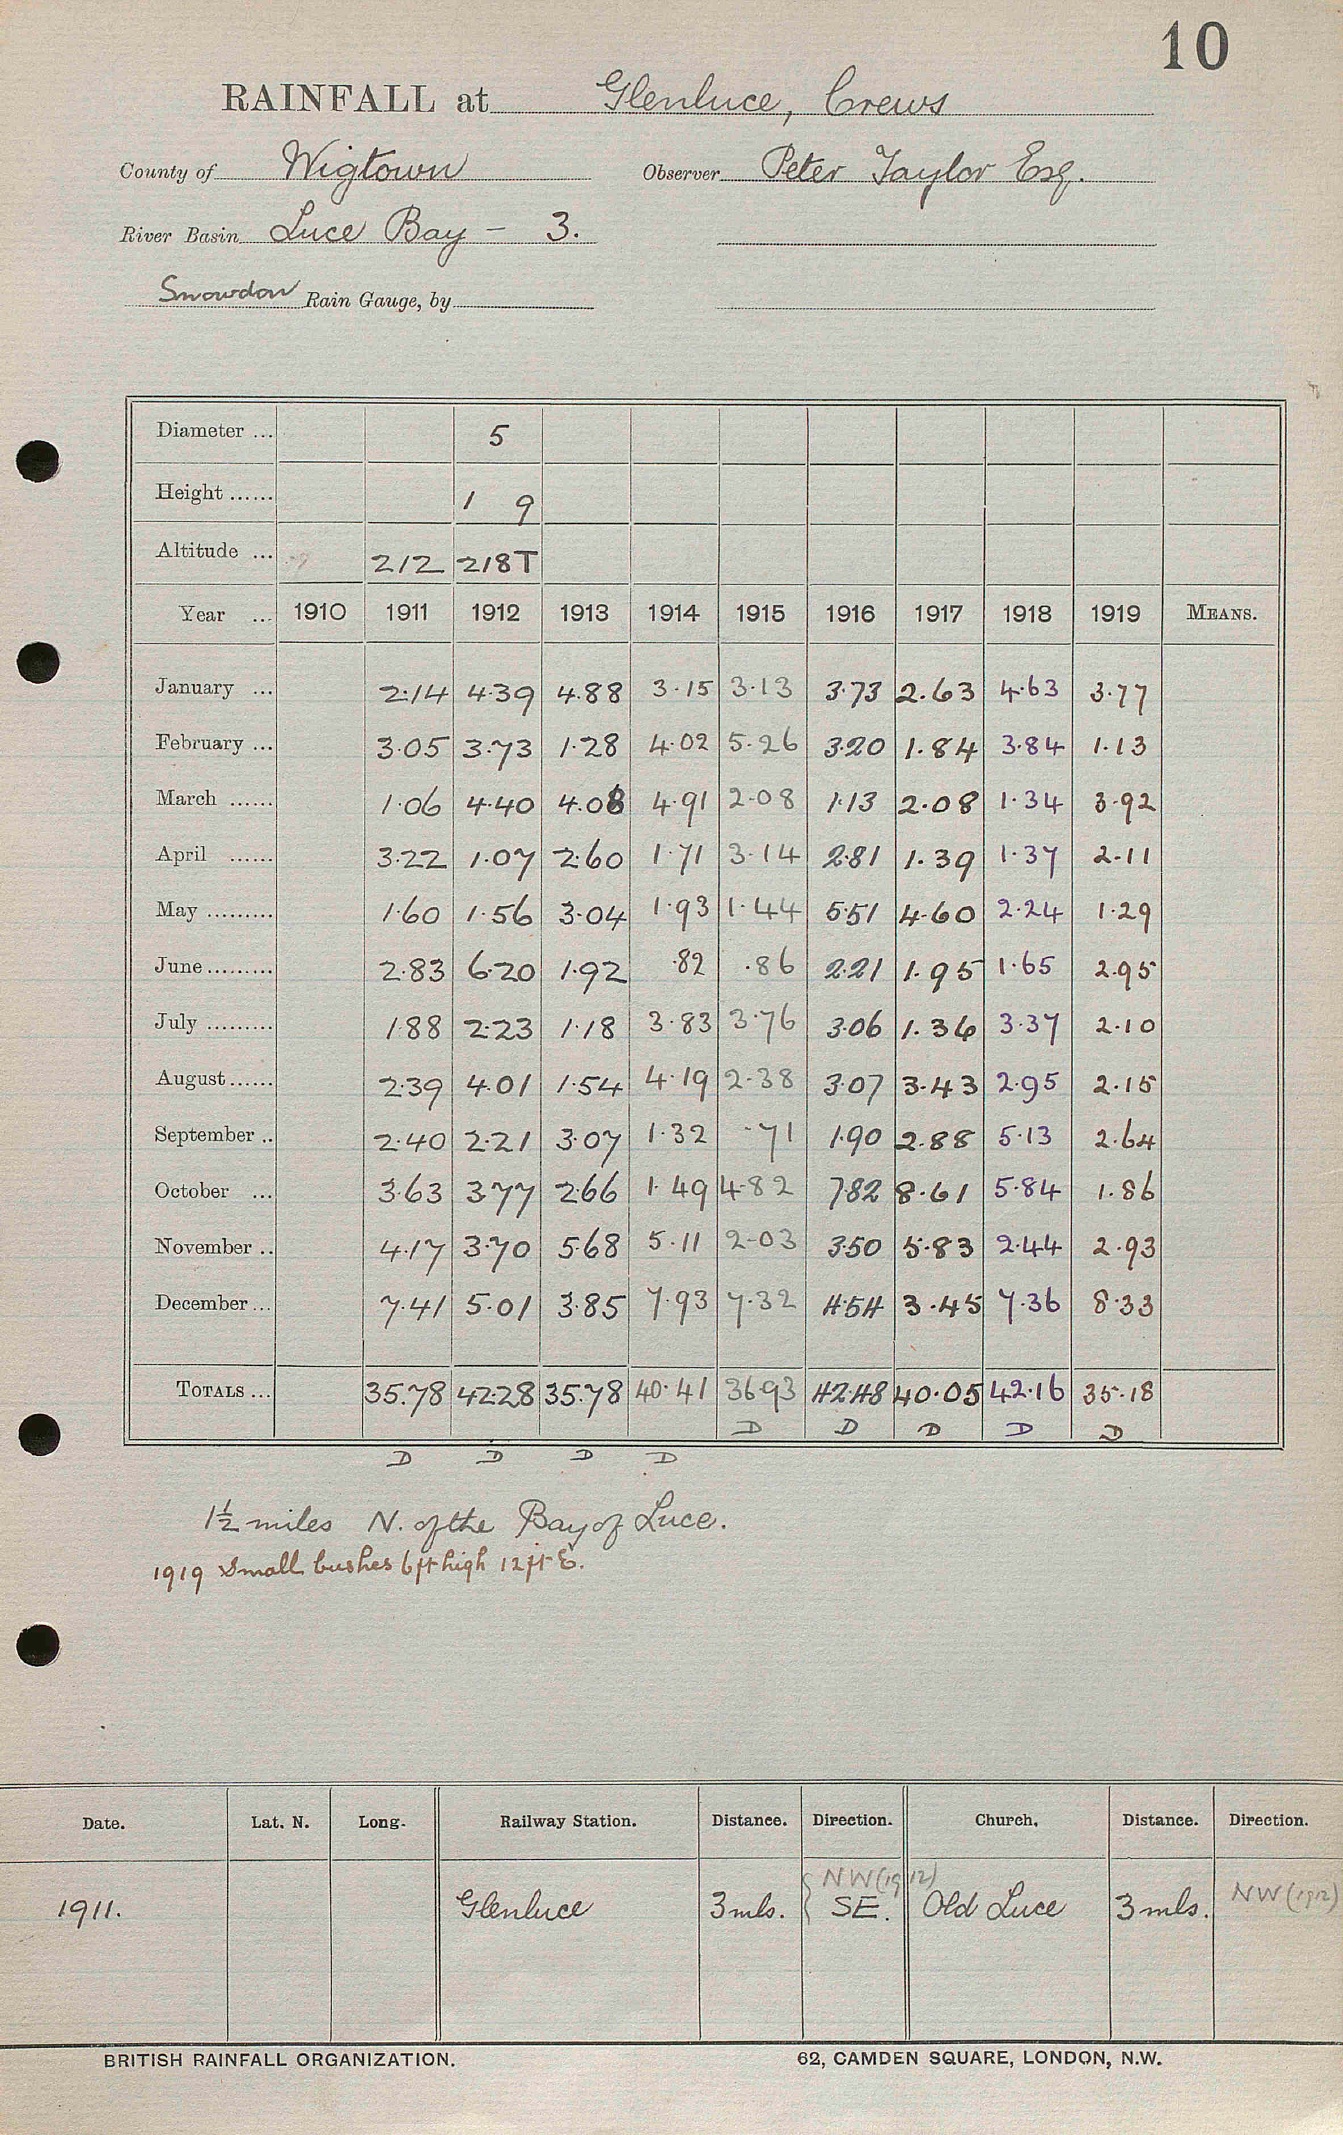 10
RAINFALL at Glenluce, Crews
County of Wigtown Observer Peter Taylor Esq.
River Basin Luce Bay - 3.
Snowdon Rain Gauge, by
Diameter ... 5
Height ...... 1 9
Altitude ... 212 218T
Year ... 1910 1911 1912 1913 1914 1915 1916 1917 1918 1919 MEANS.
January ... 2.14 4.39 4.88 3.15 3.13 3.73 2.63 4.63 3.77
February ... 3.05 3.73 1.28 4.02 5.26 3.20 1.84 3.84 1.13
March ...... 1.06 4.40 4.08 4.91 2.08 1.13 2.08 1.34 3.92
April ...... 3.22 1.07 2.60 1.71 3.14 2.81 1.39 1.37 2.11
May ......... 1.60 1.56 3.04 1.93 1.44 5.51 4.60 2.24 1.29
June ......... 2.83 6.20 1.92 .82 .86 2.21 1.95 1.65 2.95
July ......... 1.88 2.23 1.18 3.83 3.76 3.06 1.36 3.37 2.10
August ...... 2.39 4.01 1.54 4.19 2.38 3.07 3.43 2.95 2.15
September .. 2.40 2.21 3.07 1.32 .71 1.90 2.88 5.13 2.64
October ... 3.63 3.77 2.66 1.49 4.82 7.82 8.61 5.84 1.86
November .. 4.17 3.70 5.68 5.11 2.03 3.50 5.83 2.44 2.93
December ... 7.41 5.01 3.85 7.93 7.32 4.54 3.45 7.36 8.33
TOTALS ... 35.78 42.28 35.78 40.41 36.93 42.48 40.05 42.16 35.18
D D D D D D D D D
1½ miles N. of the Bay of Luce.
1919 Small bushes 6ft high 12ft E.
Date. Lat. N. Long. Railway Station. Distance. Direction. Church. Distance. Direction.
NW (1912)
1911. Glenluce 3 mls. SE. Old Luce 3 mls. NW (1912)
BRITISH RAINFALL ORGANIZATION. 62, CAMDEN SQUARE, LONDON, N.W.